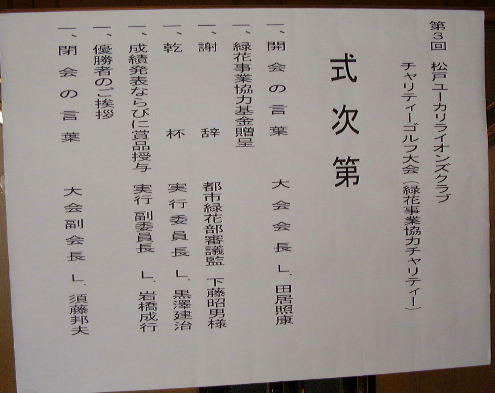 第3回 松戸ユーカリライオンズクラブ
チャリティーゴルフ大会(緑花事業協力チャリティー)
式次第
一、開会の言葉 大会会長 L. 田居照康
一、緑花事業協力基金贈呈
一、謝辞 都市緑花部審議監 下藤昭男様
一、乾杯 実行委員長 L. 黒澤建治
一、成績発表ならびに賞品授与 実行副委員長 L. 岩橋成行
一、優勝者のご挨拶
一、閉会の言葉 大会副会長 L. 須藤邦夫